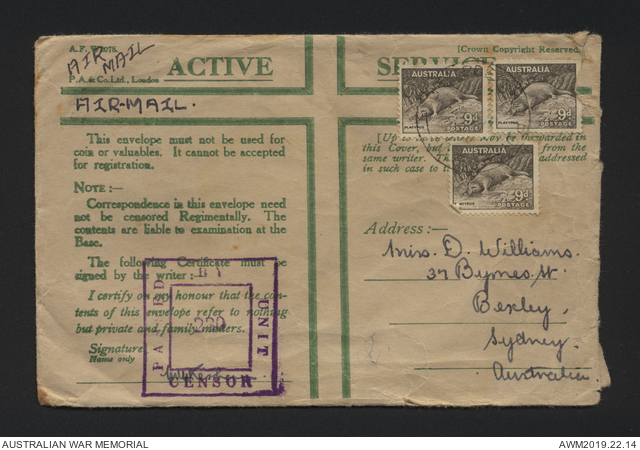 A.F.
AIR MAIL
P.A. & Co. Ltd., London
[Crown Copyright Reserved
ACTIVE SERVICE
AIR-MAIL.
AUSTRALIA
PLATYPUS
9d
POSTAGE
AUSTRALIA
PLATYPUS
9d
POSTAGE
AUSTRALIA
9d
POSTAGE
This envelope must not be used for
coin or valuables. It cannot be accepted
for registration.
NOTE:—
Correspondence in this envelope need
not be censored Regimentally. The
contents are liable to examination at the
Base.
The following Certificate must be
signed by the writer:—
I certify on my honour that the con-
tents of this envelope refer to nothing
but private and family matters.
Signature
Name only
PASSED BY
UNIT
CENSOR
be forwarded in
this Cover, but from the
same writer. addressed
in such case to
Address:—
Mrs. D. Williams.
37 Byrnes St.
Bexley.
Sydney.
Australia.
AUSTRALIAN WAR MEMORIAL
AWM2019.22.14